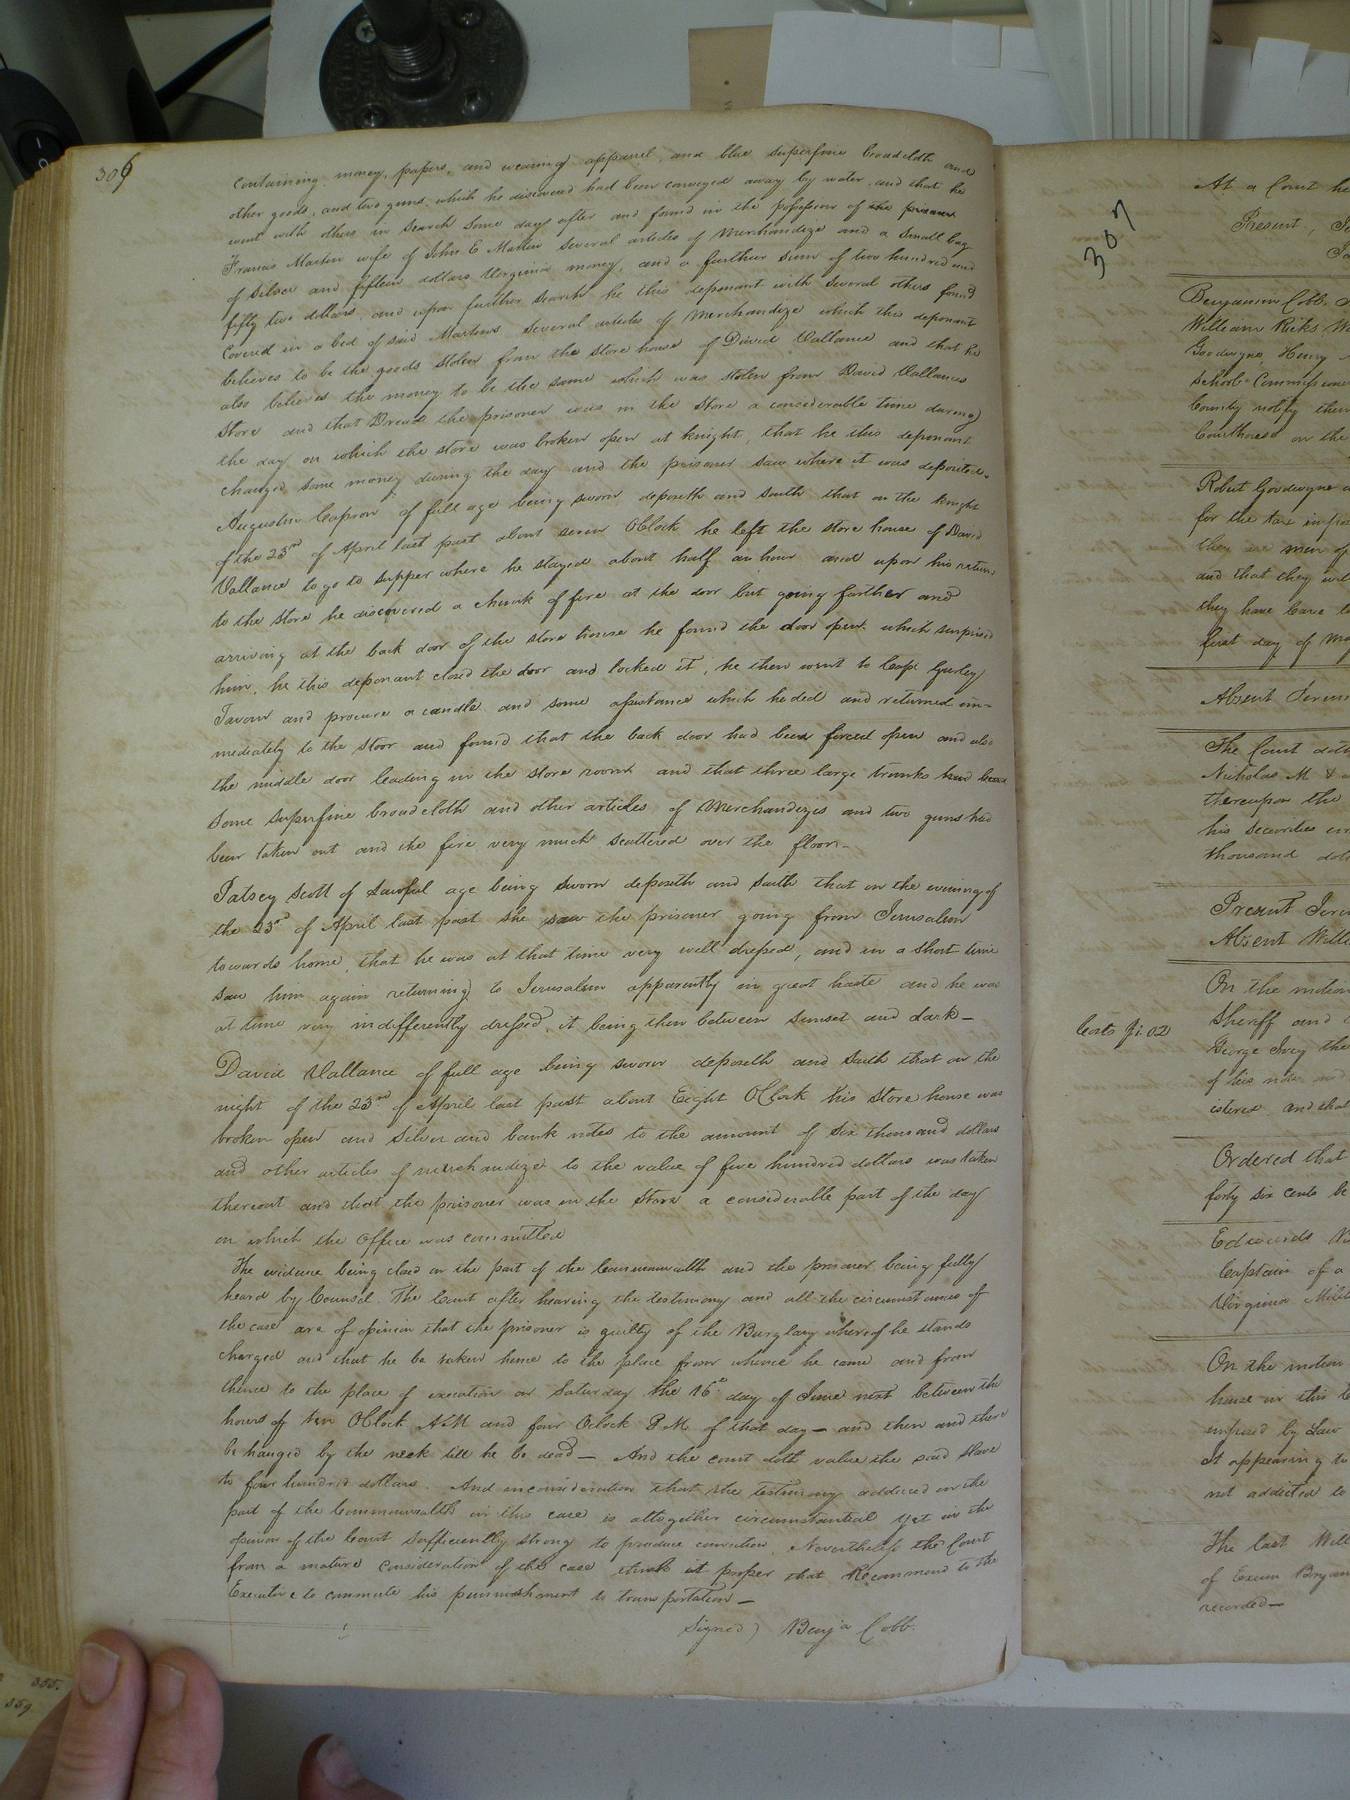 306
containing money, papers, and wearing apparel, and blue superfine broadcloth and
other goods, and two guns, which he discovered had been conveyed away by water, and that he
went with others in search some days after and found in the possession of the prisoner
Francis Masten wife of John E Masten several articles of Merchandize and a small bag
of Silver and fifteen dollars Virginia money, and a further sum of two hundred and
fifty two dollars, and upon further search he this deponant with several others found
Covered in a bed of said Mastens several articles of Merchandize which this deponant
believes to be the goods stolen from the store house of David Vallance and that he
also believes the money to be the same which was stolen from David Vallances
Store and that the prisoner was in the Store a considerable time during
the day on which the store was broken open at knight, that he this deponant
changed some money during the day and the prisoner saw where it was deposited.
Augustin Capron of full age being sworn deposeth and saith that on the knight
of the 23rd of April last past about seven OClock he left the store house of David
Vallance to go to supper where he stayed about half an hour and upon his return
to the store he discovered a chunk of fire at the door but going farther and
arriving at the back door of the store house he found the door open which surprised
him, he this deponant closed the door and locked it, he then went to Gurley
Tavern and procure a candle and some assistance which he ded and returned im-
mediately to the stoor and found that the back door had been forced open and also
the middle door leading in the store room and that three large trunks had been
some superfine broadcloth and other articles of Merchandizes and two guns had
been taken out and the fire very much scattered over the floor.-
Patsey Scott of Lawful age being sworn deposeth and saith that on the evening of
the 23rd of April last past she saw the prisoner going from Jerusalem
towards home, that he was at that time very well dressed, and in a short time
saw him again returning to Jerusalem apparently in great haste and he was
at time very indifferently dressed, it being then between sunset and dark-
David Vallance of full age being sworn deposeth and saith that on the
night of the 23rd of April last past about Eight OClock his store house was
broken open and Silver and bank notes to the amount of Six thousand dollars
and other articles of merchandize to the value of five hundred dollars was taken
thereout and that the prisoner was in the Store a considerable part of the day
on which the offece was committed
The evidence being closed on the part of the Commonwealth and the prisoner being fully
heard by Counsel. The Court after hearing the testimony and all the circumstances of
the case are of opinion that the prisoner is guilty of the Burglary whereof he stands
charged and that he be taken hence to the place from whence he came and from
thence to the place of execution on Saturday the 16th day of June next between the
hours of ten OClock AM and four Oclock P.M. of that day- and then and there
be hanged by the neck till he be dead- And the court doth value the said slave
to four hundred dollars. And in consideration that the testimony adduced on the
part of the Commonwealth in this case is altogether circumstantial yet in the
opinion of the Court sufficiently strong to produce conviction. Nevertheless the Court
from a mature consideration of the case think it proper that Recommend to the
Executive to commute his punnishment to transportation-
Signed) Benja Cobb.
307
At a Court he
Present,
Benjamin Cobb
William Ricks
Goodwyne, Henry
School Commissione
County notify them
Courthouse on the
Robert Goodwyne
for the tax
they are men of
and that they wil
they have leave to
first day of
Absent
The Court doth
Nicholas M
thereupon the
his securities
thousand doll
Present
Absent Willi
On the motion
Costs $1.02
Sheriff and
George Ivey the
of his note
and that
Ordered that
forty six cents be
Edwards
Captain of a
Virginia Milit
On the motion
house in this
by Law
It appearing to
not addicted to
The last Will
of Exum Bryan
recorded-
355.
359